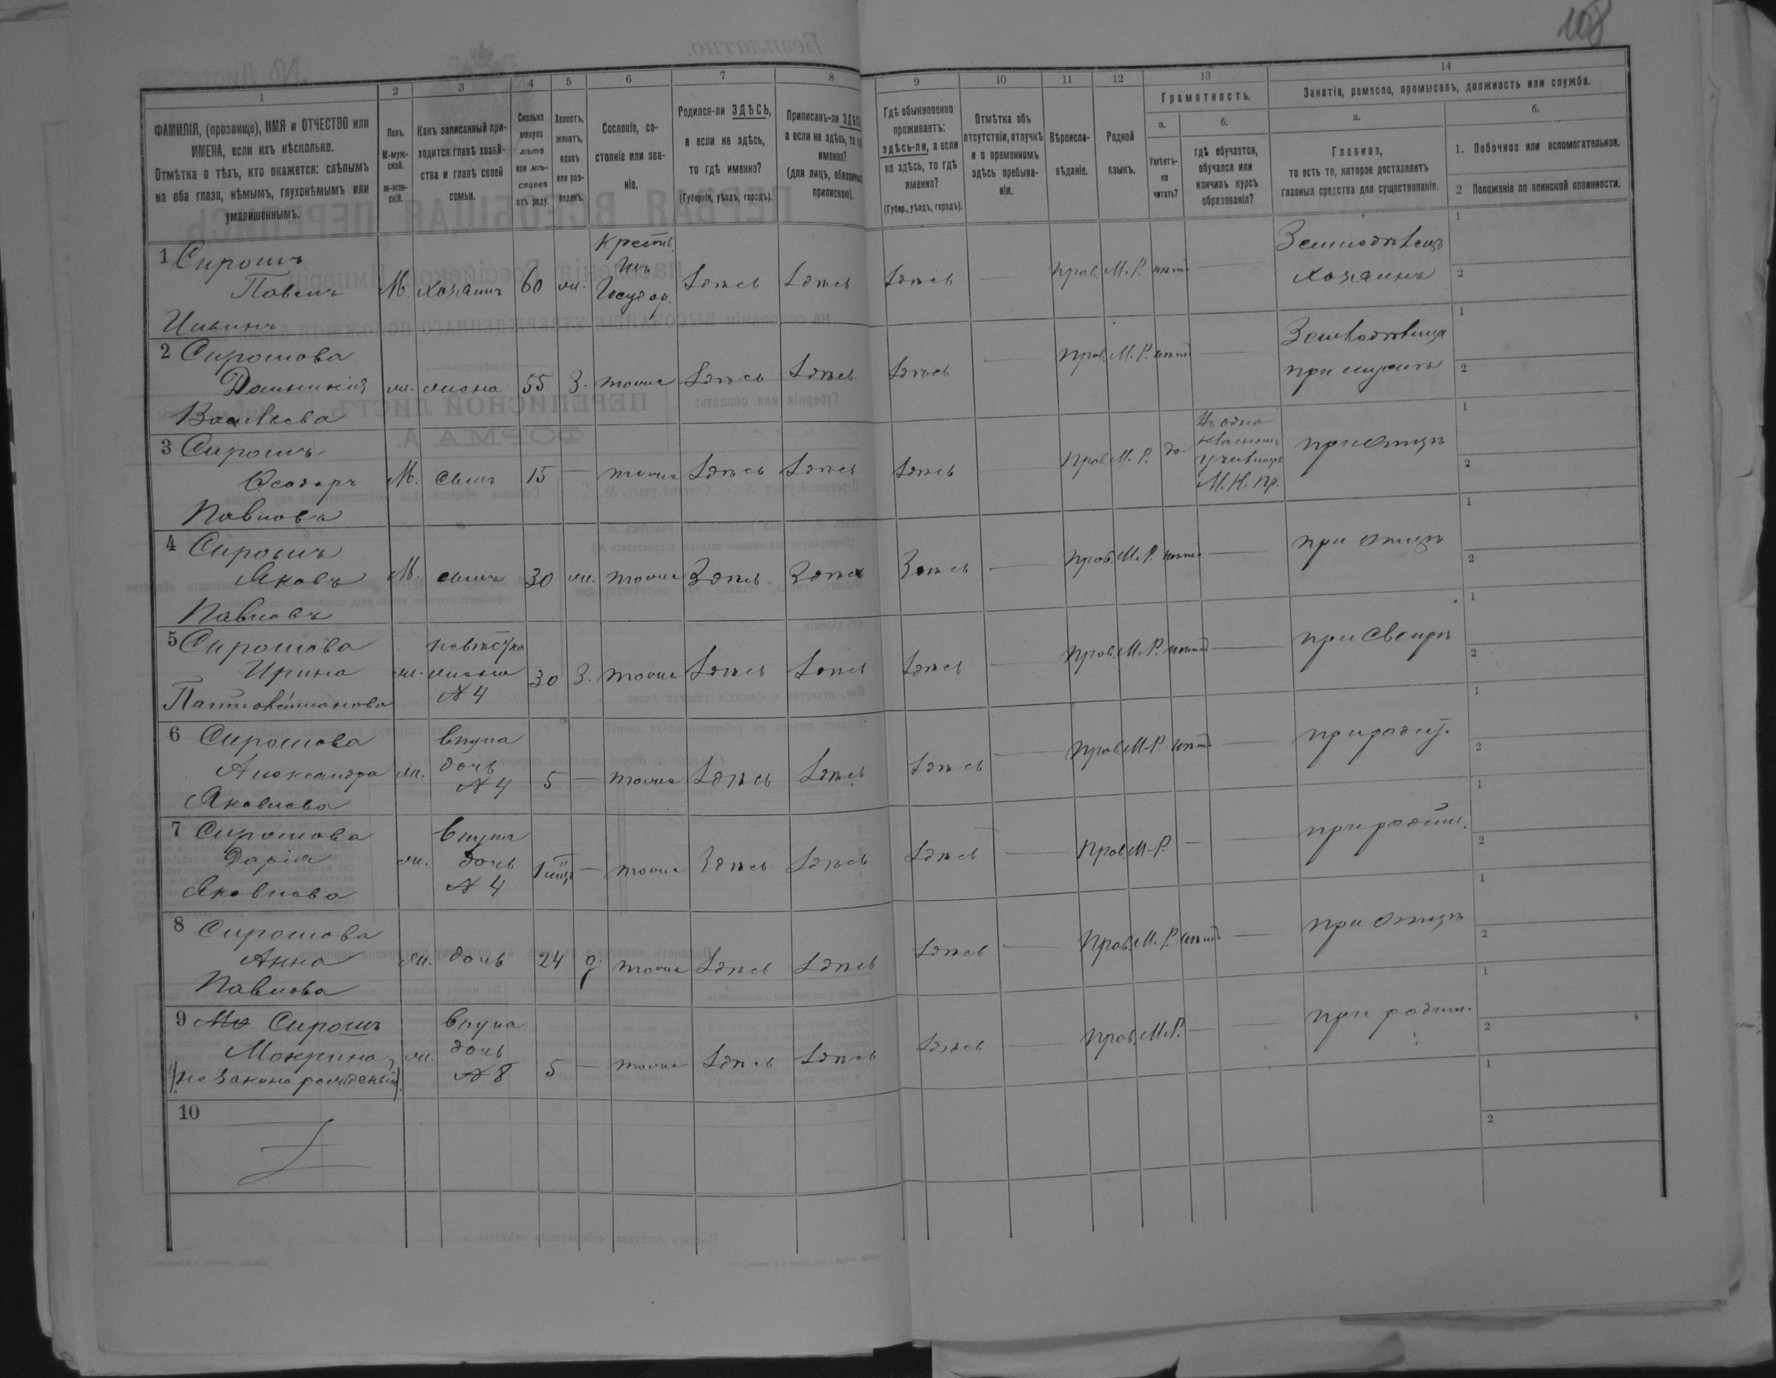 108
1 2 3 4 5 6 7 8 9 10 11 12 13 14
ФАМИЛІЯ, (прозвище), ИМЯ и ОТЧЕСТВО или
ИМЕНА, если ихъ нѣсколько.
Отмѣтка о тѣхъ, кто окажется: слѣпымъ
на оба глаза, нѣмымъ, глухонѣмымъ или
умалишеннымъ.
Полъ.
М-муж-
ской.
Ж-жен-
скій.
Какъ записанный при-
ходится главѣ хозяй-
ства и главѣ своей
семьи.
Сколько
минуло
лѣтъ
или мѣ-
сяцевъ
отъ роду.
Холостъ,
женатъ,
вдовъ
или раз-
веденъ.
Сословіе, со-
стояніе или зва-
ніе.
Родился-ли ЗДѢСЬ,
а если не здѣсь,
то гдѣ именно?
(Губернія, уѣздъ, городъ).
Приписанъ-ли ЗДѢСЬ,
а если не здѣсь, то гдѣ
именно?
(для лицъ, обязанныхъ
припискою).
Гдѣ обыкновенно
проживаетъ:
здѣсь-ли, а если
не здѣсь, то гдѣ
именно?
(Губер., уѣздъ, городъ).
Отмѣтка объ
отсутствіи, отлучкѣ
и о временномъ
здѣсь пребыва-
ніи.
Вѣроиспо-
вѣданіе.
Родной
языкъ.
Грамотность.
а.
Умѣетъ-
ли
читать?
б.
гдѣ обучается,
обучался или
кончилъ курсъ
образованія?
Занятія, ремесло, промыселъ, должность или служба.
а.
Главное,
то есть то, которое доставляетъ
главныя средства для существованія.
б.
1. Побочное или вспомогательное.
2 Положеніе по воинской повинности.
1 Сирошъ
Павелъ
М. хозяинъ 60 ж. Крестъ. Изъ Государ. Здѣсь Здѣсь Здѣсь — Прав. М.Р. нѣтъ — Земледѣлецъ хозяинъ 1 2
2 Сирошова
Васильева
ж. жена 55 З. тоже Здѣсь Здѣсь Здѣсь — Прав. М.Р. нѣтъ — 1 2
3 Сирошъ
Ѳеодоръ
Павлова
М. сынъ 15 — тоже Здѣсь Здѣсь Здѣсь Прав. М.Р. да Въ одно
классномъ
училищѣ
М.Н.Пр. при отцѣ 1 2
4 Сирошъ
Яковъ
Павловъ
М. сынъ 30 ж. тоже Здѣсь Здѣсь Здѣсь — Прав. М.Р. нѣтъ — при отцѣ 1 2
5 Сирошова
Ирина
Пантелеймонова
ж. невѣстка
жена
№ 4 30 З. тоже Здѣсь Здѣсь Здѣсь — Прав. М.Р. нѣтъ — при свекрѣ 1 2
6 Сирошова
Александра
Яковлева
ж. внука
дочь
№ 4 5 — тоже Здѣсь Здѣсь Здѣсь — Прав. М.Р. нѣтъ — при родит. 1 2
7 Сирошова
Дарія
Яковлева
ж. внука
дочь
№ 4 — тоже Здѣсь Здѣсь Здѣсь — Прав. М.Р. — — при родит. 1 2
8 Сирошова
Анна
Павлова
ж. дочь 24 тоже Здѣсь Здѣсь Здѣсь — Прав. М.Р. нѣтъ — при отцѣ 1 2
9 Сирошъ
Мокрина
(незаконнорожденная)
ж. внука
дочь
№ 8 5 — тоже Здѣсь Здѣсь Здѣсь — Прав. М.Р. — — при родит. 1 2
10 1 2